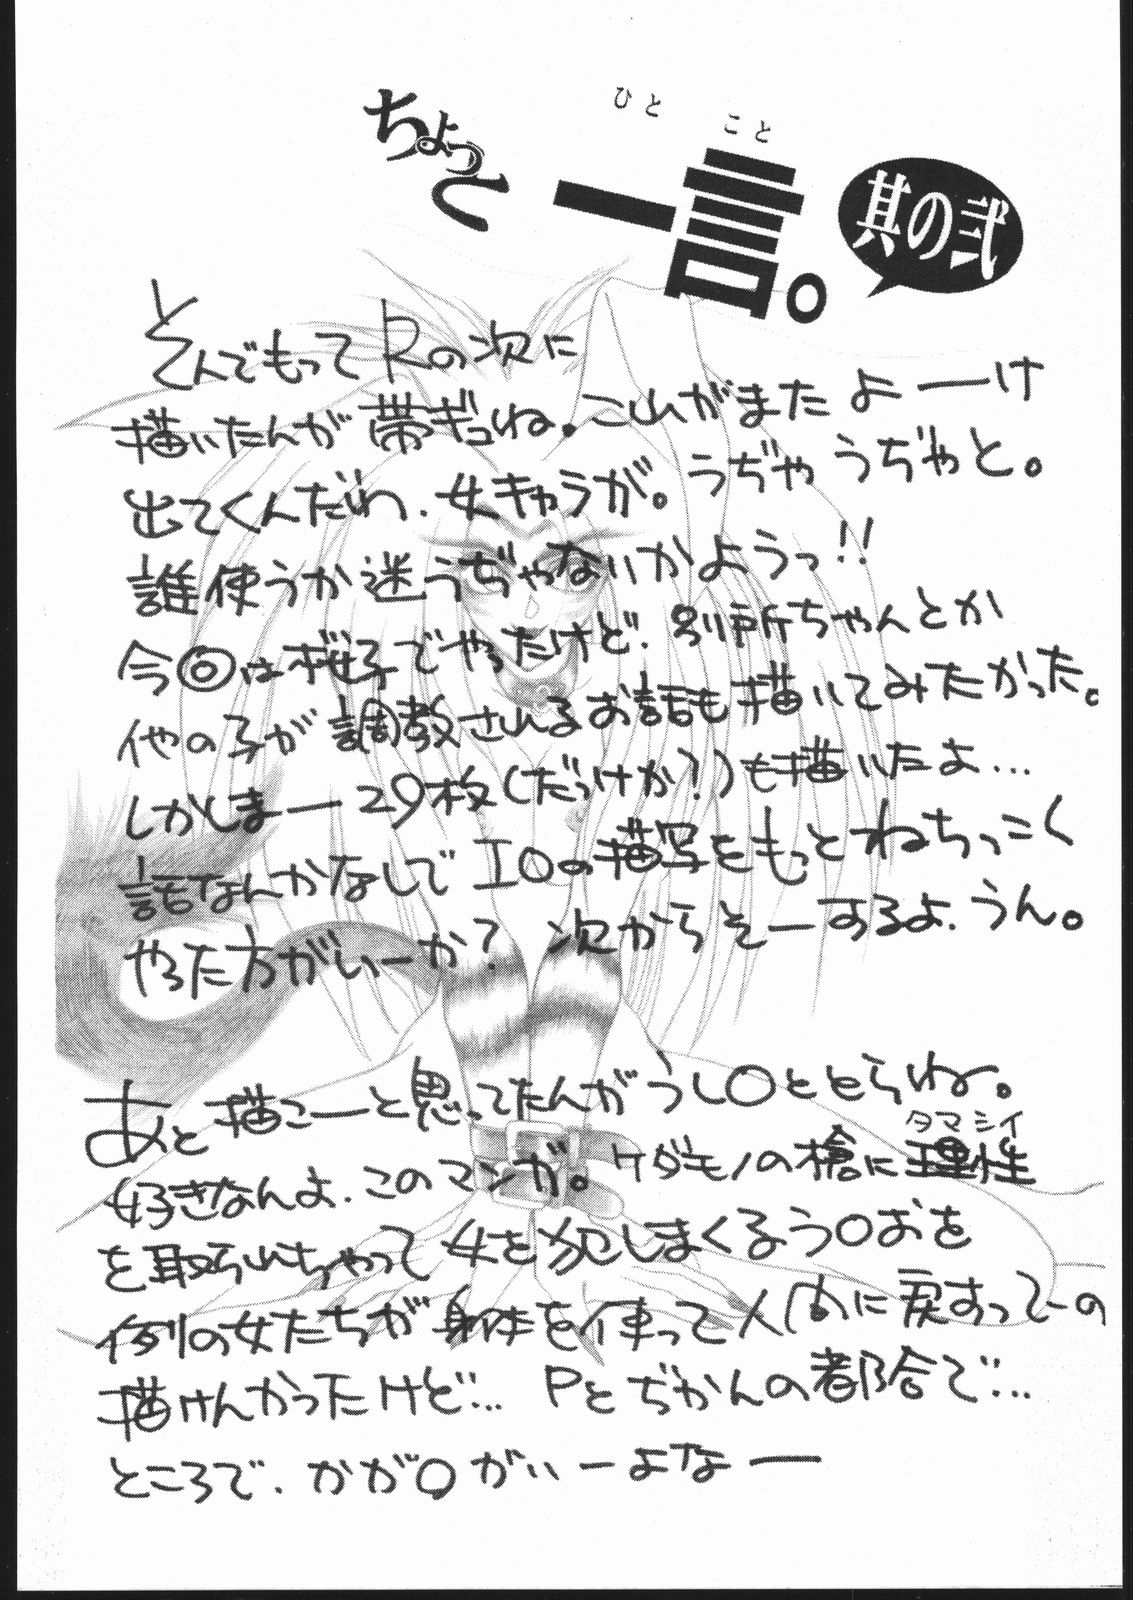 ちょっと一言。
ひとこと
其の弐
とんでもってRの次に
描いたんが帯ギュね。こいがまたよーけ
出てくんだわ、女きゃうが。うぢゃうぢゃと。
誰使うか迷うぢゃないかようっ!!
今回は桜子でやったけど、別所ちゃんとか
他の子が調教されるお話も描いてみたかった。
しかしまー29枚(だっけか?)も描いたよ…
話なんかなしでIOの描写をもっとねちっこく
やった方がいーか?次からそーするよ、うん。
あと描こーと思ってたんがうし○ととらね。
好きなんよ、このマンガ。ケダモノの槍に理性
タマシイ
を取られちゃって女を犯しまくるう○おを
例の女たちが身体を使って人間に戻すってーの
描けんかったけど… Pとぢかんの都合で…
ところで、かが○がいーよなー